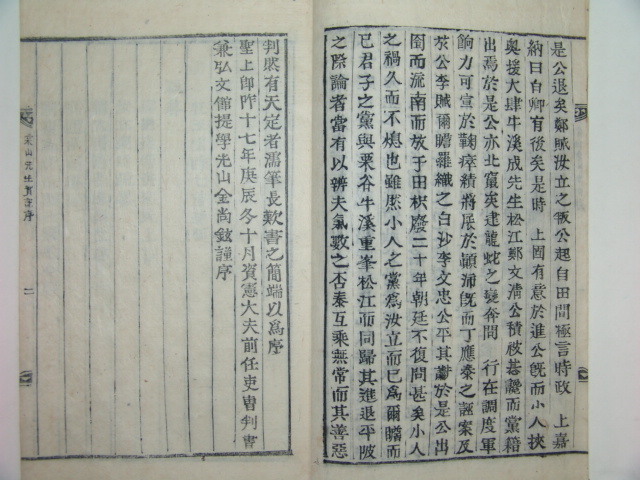 是公退矣鄭賊汝立之叛公起自田間極言時政　上嘉
納曰白卿有後矣是時　上固有意於進公旣而小人挾
奧援大肆牛溪成先生松江鄭文淸公積被甚讒而黨籍
出焉於是公亦北竄矣逮龍蛇之變奔問　行在調度軍
餉力可宣於鞠瘁績將展於顚沛旣而丁應泰之誣案及
於公李賊爾瞻羅織之白沙李文忠公平其讞於是公出
圄而流南而放于田枳廢二十年朝廷不復問甚矣小人
之禍久而不熄也雖然小人之黨爲汝立而已爲爾瞻而
已君子之黨與栗谷牛溪重峯松江而同歸其進退平陂
之際論者當有以辨夫氣數之否泰互乘無常而其善惡
判然有天定者濡筆長歎書之簡端以爲序
聖上卽阼十七年庚辰冬十月資憲大夫前任吏曹判書
兼弘文館提學光山金尙鉉謹序
先生
序
二